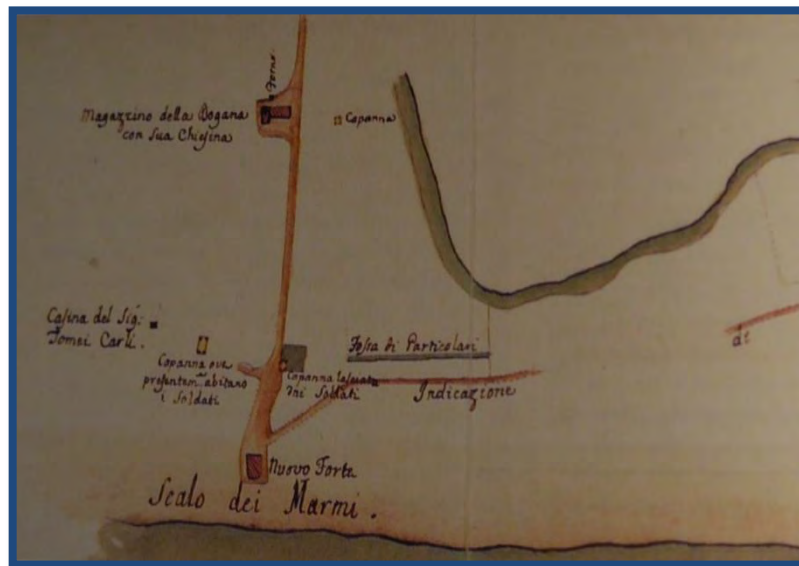 Forno
Magazzino della Dogana
con sua Chiesina
Capanna
Casina del Sig.
Tomei Carli.
Capanna ove
presentem. abitano
i Soldati
Capanna lasciata
dai Soldati
Fossa di Particolari
Indicazione
di
Nuovo Forte
Scalo dei Marmi.